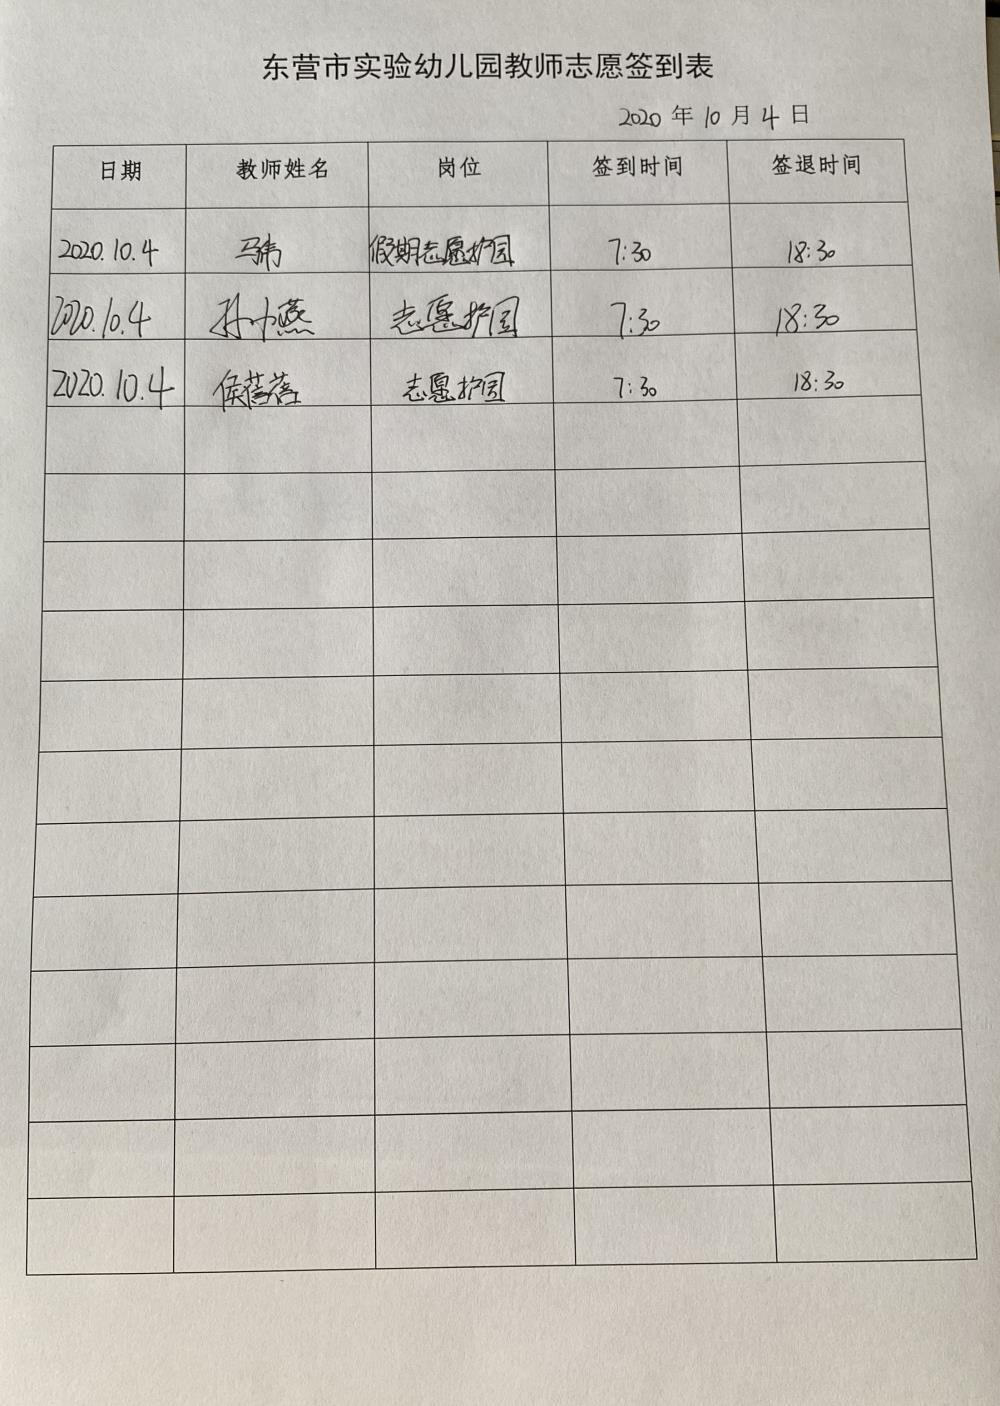 东营市实验幼儿园教师志愿签到表
2020 年 10 月 4 日
日期 教师姓名 岗位 签到时间 签退时间
2020.10.4 马伟 假期志愿护园 7:30 18:30
2020.10.4 孙小燕 志愿护园 7:30 18:30
2020.10.4 侯蓓蓓 志愿护园 7:30 18:30